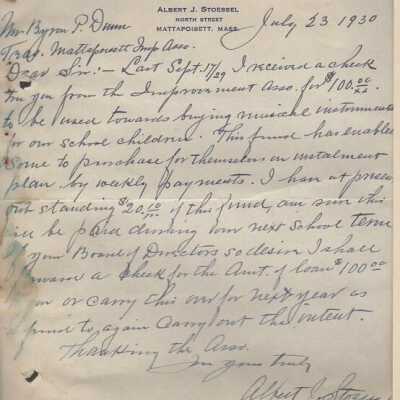 ALBERT J. STOESSEL
NORTH STREET
MATTAPOISETT, MASS.
July 23 1930
Mr Byron P. Dunn
Trea. Mattapoisett Imp Asso.
Dear Sir:- Last Sept. 17/29 I received a check
from you from the Improvement Asso. for $100.00
to be used towards buying musical instruments
for our school children. This fund has enabled
some to purchase for themselves on instalment
plan by weekly payments. I have at present
out standing $20.00 of this fund, am sure this
will be paid during our next School term
if your Board of Directors so desire I shall
forward a check for the Amt. of loan $100.00
or carry this over for next year as
to again carry out the intent.
Thanking the Asso.
yours truly
Albert J. Stoessel